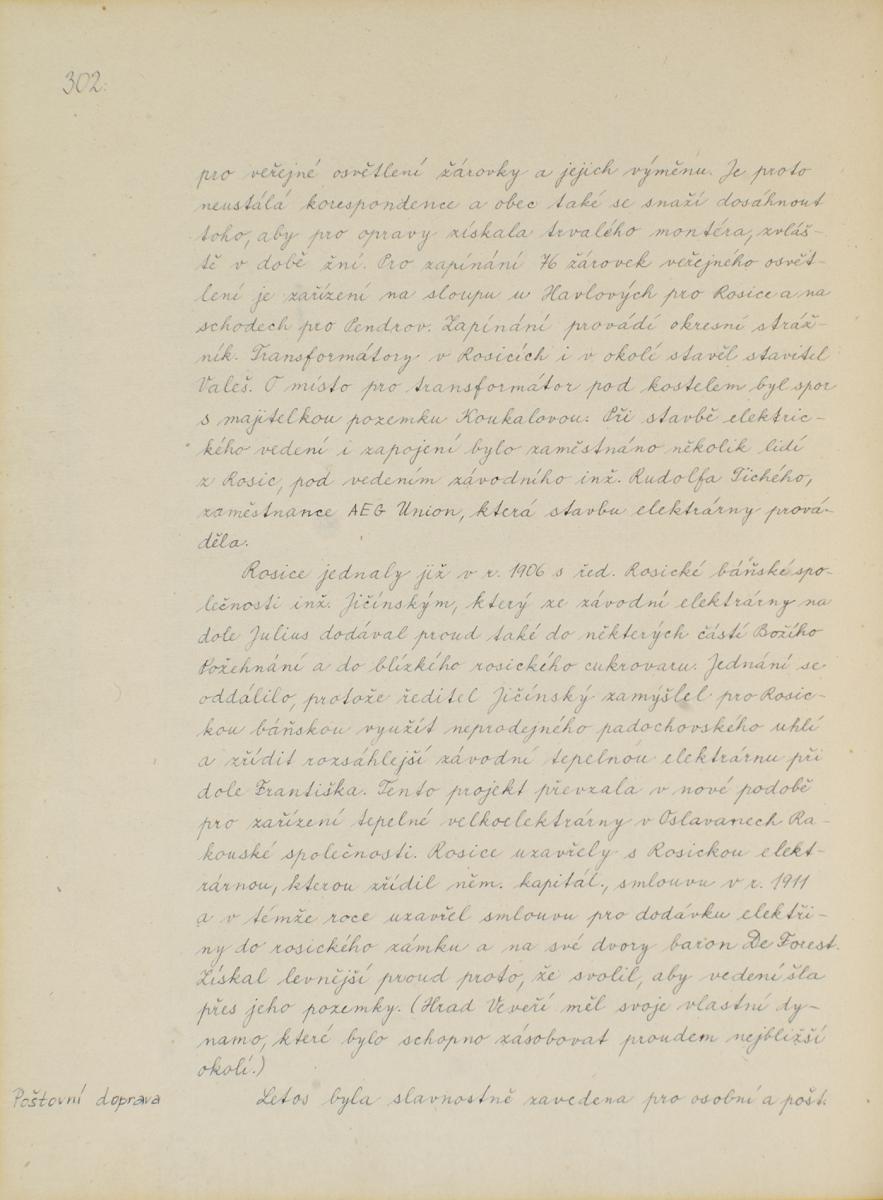 302.
pro veřejné osvětlení žárovky a jejich výměnu. Je proto
neustálá korespondence a obec také se snaží dosáhnout
toho, aby pro opravy získala trvalého montéra, zvláš-
tě v době žní. Pro zapínání 76 žárovek veřejného osvět-
lení je zařízení na sloupu u Havlových pro Rosice a na
schodech pro Pendrov. Zapínání provádí okresní stráž-
ník. Transformátory v Rosicích i v okolí stavěl stavitel
Valeš. O místo pro transformátor pod kostelem byl spor
s majitelkou pozemku Koukalovou. Při stavbě elektric-
kého vedení i zapojení bylo zaměstnáno několik lidí
z Rosic, pod vedením závodního inž. Rudolfa Tichého,
zaměstnance AEG Union, která stavbu elektrárny prová-
děla.
Rosice jednaly již v r. 1906 s řed. Rosické báňské spo-
lečnosti inž. Jičínským, který ze závodní elektrárny na
dole Julius dodával proud také do některých částí Božího
Požehnání a do blízkého rosického cukrovaru. Jednání se
oddálilo, protože ředitel Jičínský zamýšlel pro Rosic-
kou báňskou využít neprodejného padochovského uhlí
a zřídit rozsáhlejší závodní tepelnou elektrárnu při
dole Františka. Tento projekt převzala v nové podobě
pro zařízení tepelné velkoelektrárny v Oslavanech Ra-
kouské společnosti. Rosice uzavřely s Rosickou elekt-
rárnou, kterou zřídil něm. kapitál., smlouvu v r. 1911
a v témže roce uzavřel smlouvu pro dodávku elektři-
ny do rosického zámku a na své dvory baron De Forest.
Získal levnější proud proto, že svolil, aby vedení šla
přes jeho pozemky. (Hrad Veveří měl svoje vlastní dy-
namo, které bylo schopno zásobovat proudem nejbližší
okolí.)
Poštovní doprava Letos byla slavnostně zavedena pro osobní a pošt.